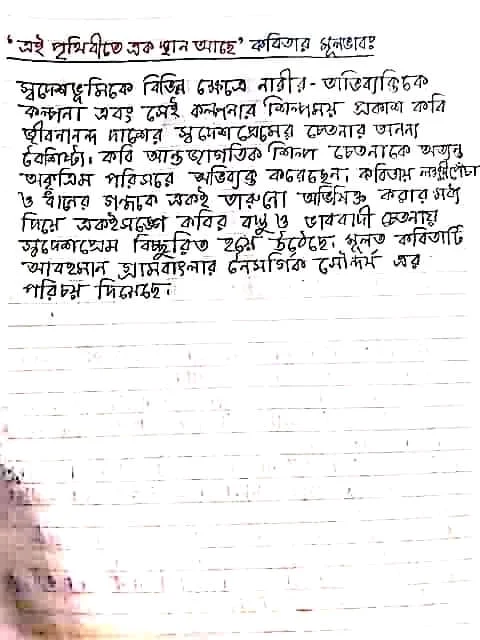 'এই পৃথিবীতে এক স্থান আছে' কবিতার মূলভাবঃ
স্বদেশভূমিকে বিভিন্ন ক্ষেত্রে নারীর - অভিব্যক্তিকে
কল্পনা এবং সেই কল্পনার শিল্পময় প্রকাশ কবি
জীবনানন্দ দাশের স্বদেশপ্রেমের চেতনার অনন্য
বৈশিষ্ট্য। কবি আন্তর্জাতিক শিল্প চেতনাকে অত্যন্ত
অকৃত্রিম পরিসরে অভিব্যক্ত করেছেন। কবিতায় লক্ষ্মীপেঁচা
ও ধানের গন্ধকে একই তারুণ্যে অভিষিক্ত করার মধ্য
দিয়ে একইসঙ্গে কবির বাস্তু ও ভাববাদী চেতনায়
স্বদেশপ্রেম বিচ্ছুরিত হয়ে উঠেছে। মূলত কবিতাটি
আবহমান গ্রামবাংলার নৈসর্গিক সৌন্দর্য এর
পরিচয় দিয়েছে।